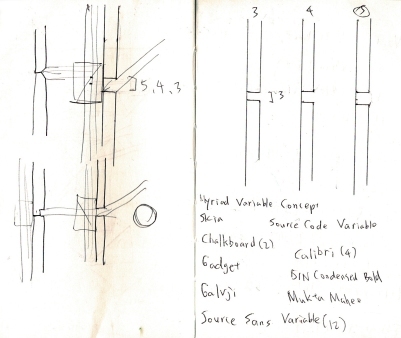 5, 4, 3
3 4 5
3
Myriad Variable Concept
Skia Source Code Variable
Chalkboard (2) Calibri (4)
Gadget DIN Condensed Bold
Galvji Mukta Mahee
Source Sans Variable (12)